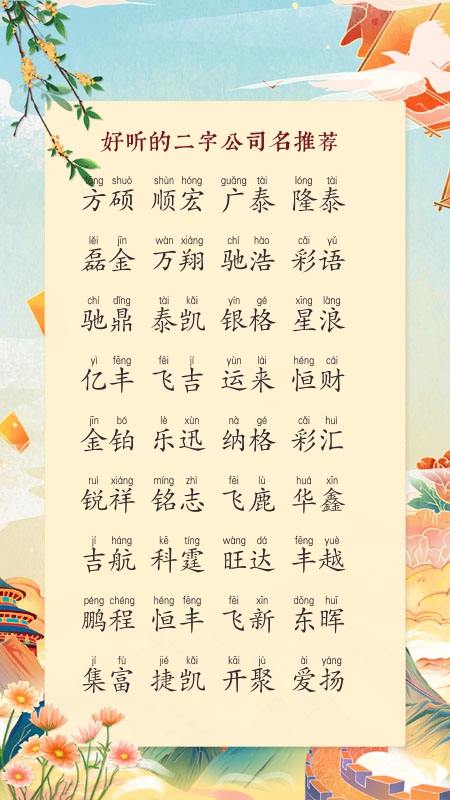 好听的二字公司名推荐
fāng shuò shùn hóng guǎng tài lóng tài
方硕 顺宏 广泰 隆泰
lěi jīn wàn xiáng chí hào cǎi yǔ
磊金 万翔 驰浩 彩语
chí dǐng tài kǎi yín gé xīng làng
驰鼎 泰凯 银格 星浪
yì fēng fēi jí yùn lái héng cái
亿丰 飞吉 运来 恒财
jīn bó lè xùn nà gé cǎi huì
金铂 乐迅 纳格 彩汇
ruì xiáng míng zhì fēi lù huá xīn
锐祥 铭志 飞鹿 华鑫
jí háng kē tíng wàng dá fēng yuè
吉航 科霆 旺达 丰越
péng chéng héng fēng fēi xīn dōng huī
鹏程 恒丰 飞新 东晖
jí fù jié kǎi kāi jù ài yáng
集富 捷凯 开聚 爱扬